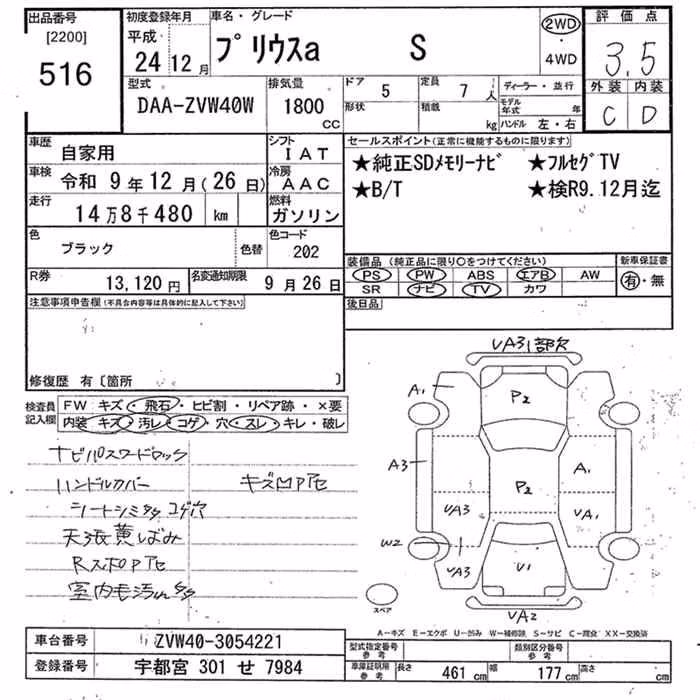 出品番号 初度登録年月 車名・グレード 評価点
[2200] 平成 プリウスa S 2WD
516 24 12月 ・4WD 3.5
型式 排気量 ドア 5 定員 7人 ディーラー・並行 外装 内装
DAA-ZVW40W 1800cc 形状 積載 kg モデル年式 年 C D
ハンドル 左・右
車歴 自家用 シフト IAT セールスポイント(正常に機能するものに限ります)
車検 令和 9年12月(26日) 冷房 AAC ★純正SDメモリーナビ ★フルセグTV
走行 14万8千480 km 燃料 ガソリン ★B/T ★検R9.12月迄
色 ブラック 色替 色コード 202
装備品(純正品に限り○をつけてください) 新車保証書
R券 13,120円 名変通知期限 9月26日 PS PW ABS エアB AW 有・無
SR ナビ TV カワ
注意事項申告欄(不具合内容等は具体的に記入して下さい) 後日品
修復歴 有〔箇所 〕
検査員記入欄 FW キズ・飛石・ヒビ割・リペア跡・×要
内装 キズ・汚レ・コゲ・穴・スレ・キレ・破レ
ナビパスワードロック
ハンドルカバー キズ凹アセ
シートシミ多々コゲ穴
天張黄ばみ
室内毛汚れ多々
VA3 1部欠
A1 P2
A3 P2 A1
VA3 VA1
W2 VA3 V1
VA2
スペア
A-キズ E-エクボ U-凹み W-補修跡 S-サビ C-腐食 XX-交換済
車台番号 ZVW40-3054221 型式指定番号 参考 類別区分番号 参考
登録番号 宇都宮 301 せ 7984 車庫証明用 参考 長さ 461cm 幅 177cm 高さ cm